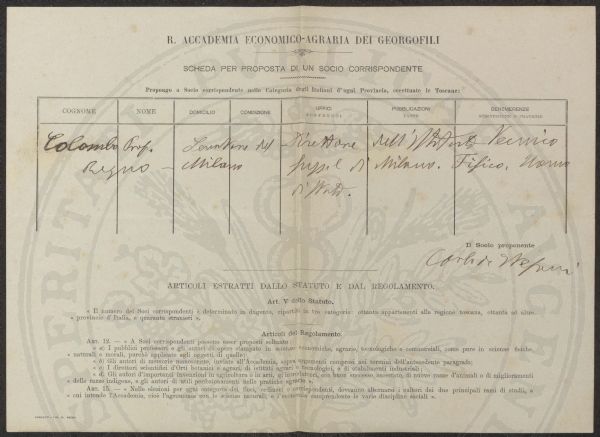 R. ACCADEMIA ECONOMICO-AGRARIA DEI GEORGOFILI
SCHEDA PER PROPOSTA DI UN SOCIO CORRISPONDENTE
Propongo a Socio corrispondente nella Categoria degli Italiani d'ogni Provincia, eccettuate le Toscane:
COGNOME NOME DOMICILIO CONDIZIONE UFFICI PUBBLICAZIONI FATTE BENEMERENZE
Colombo Prof. Senatore del Direttore dell'Istituto Tecnico
Regno Milano Milano.
Il Socio proponente
Carlo de
ARTICOLI ESTRATTI DALLO STATUTO E DAL REGOLAMENTO.
Art. V dello Statuto.
« Il numero dei Soci corrispondenti è determinato in dugento, ripartiti in tre categorie: ottanta appartenenti alla regione toscana, ottanta ad altre
« provincie d'Italia, e quaranta stranieri ».
Articoli del Regolamento.
ART. 12. — « A Soci corrispondenti possono esser proposti soltanto:
« a) I pubblici professori e gli autori di opere stampate in scienze economiche, agrarie, tecnologiche e commerciali, come pure in scienze fisiche,
« naturali e morali, purchè applicate agli oggetti di quelle;
« b) Gli autori di memorie manoscritte, inedite all'Accademia, sopra argomenti compresi nei termini dell'antecedente paragrafo;
« c) I direttori scientifici d'Orti botanici e agrari, di istituti agrari e tecnologici, e di stabilimenti industriali;
« d) Gli autori d'importanti invenzioni in agricoltura o in arti, gl'introduttori, con buon successo accertato, di nuove razze d'animali o di miglioramenti
« delle razze indigene, e gli autori di utili perfezionamenti nelle pratiche agrarie ».
ART. 15. — « Nelle elezioni per ogni categoria dei Soci, ordinari o corrispondenti, dovranno alternarsi i cultori dei due principali rami di studi, a
« cui intende l'Accademia, cioè l'agronomia con le scienze naturali, e l'economia comprendente le varie discipline sociali ».